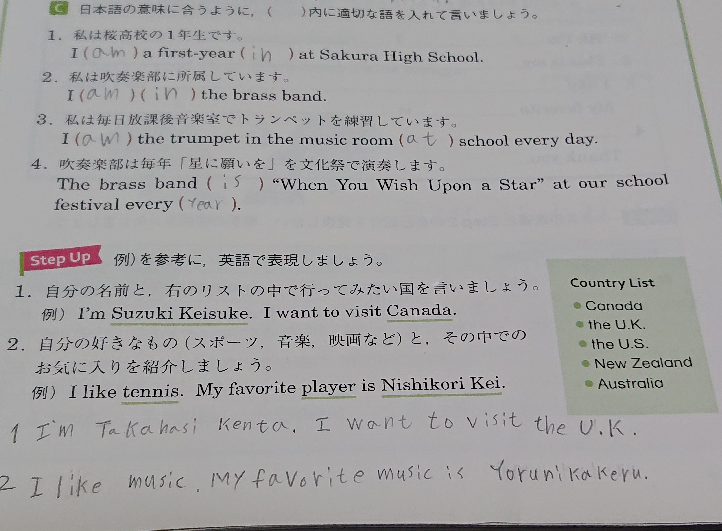 C 日本語の意味に合うように，（　）内に適切な語を入れて言いましょう。
1．私は桜高校の1年生です。
I ( am ) a first-year ( in ) at Sakura High School.
2．私は吹奏楽部に所属しています。
I ( am ) ( in ) the brass band.
3．私は毎日放課後音楽室でトランペットを練習しています。
I ( am ) the trumpet in the music room ( at ) school every day.
4．吹奏楽部は毎年「星に願いを」を文化祭で演奏します。
The brass band ( is ) “When You Wish Upon a Star” at our school
festival every ( Year ).
Step Up 例) を参考に，英語で表現しましょう。
1．自分の名前と，右のリストの中で行ってみたい国を言いましょう。
例）I’m Suzuki Keisuke. I want to visit Canada.
2．自分の好きなもの（スポーツ，音楽，映画など）と，その中での
お気に入りを紹介しましょう。
例）I like tennis. My favorite player is Nishikori Kei.
Country List
● Canada
● the U.K.
● the U.S.
● New Zealand
● Australia
1 I'm Takahasi Kenta. I want to visit the U.K.
2 I like music. My favorite music is Yorunikakeru.